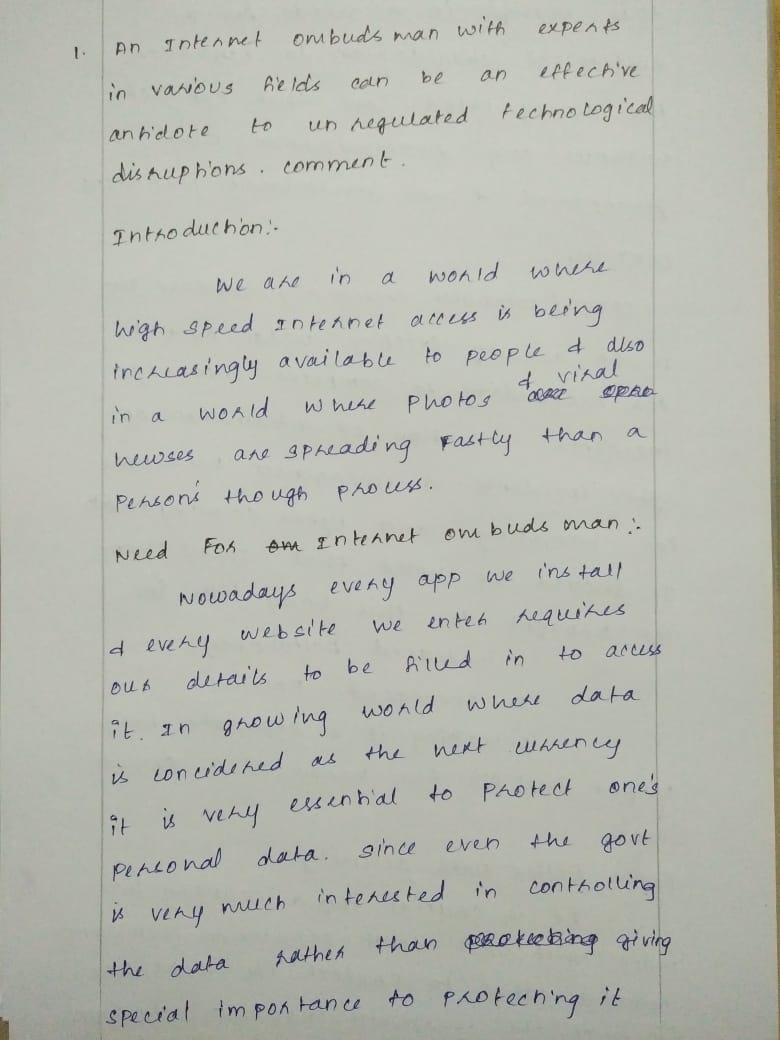 1. An Internet ombudsman with experts
in various fields can be an effective
antidote to unregulated technological
disruptions. comment.
Introduction:-
We are in a world where
high speed Internet access is being
increasingly available to people & also
in a world where photos & viral
newses are spreading Fastly than a
person's though process.
Need For Internet ombudsman :-
Nowadays every app we install
& every website we enter requires
our details to be filled in to access
it. In growing world where data
is concidered as the next currency
it is very essential to protect one's
personal data. since even the govt
is very much interested in controlling
the data rather than giving
special importance to protecting it